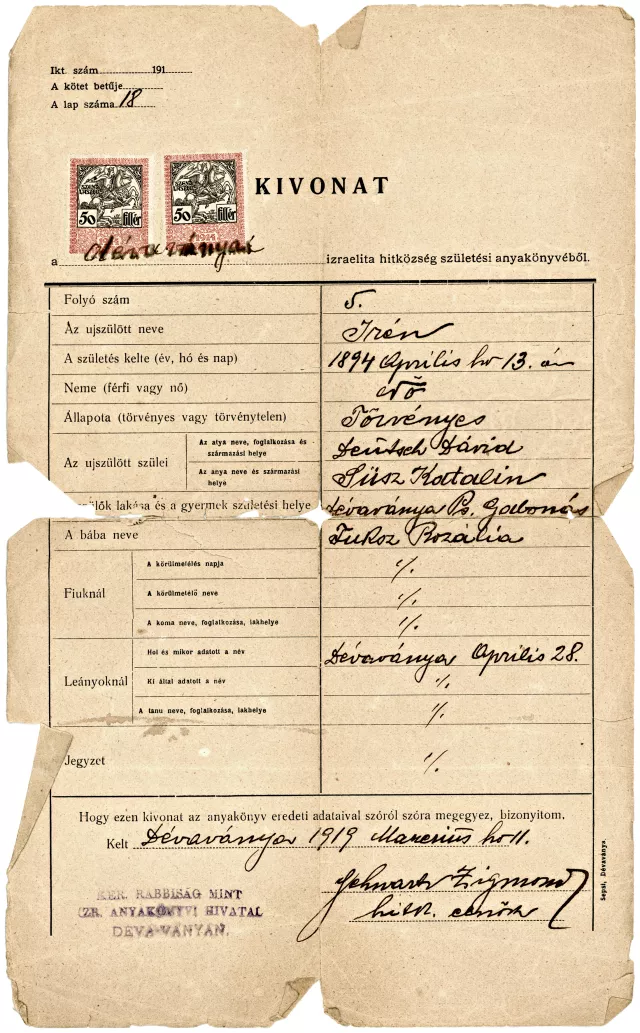 Ikt. szám 191
A kötet betűje
A lap száma 18
50 fillér 50 fillér
1914
KIVONAT
a dévaványai izraelita hitközség születési anyakönyvéből.
Folyó szám 5.
Az ujszülött neve Irén
A születés kelte (év, hó és nap) 1894 Április hó 13. án
Neme (férfi vagy nő) Nő
Állapota (törvényes vagy törvénytelen) Törvényes
Az ujszülött szülei
Az atya neve, foglalkozása és származási helye Deutsch Dávid
Az anya neve és származási helye Süsz Katalin
lők lakása és a gyermek születési helye Dévaványa Ps. Gabonás
A bába neve Fuksz Rozália
Fiuknál
A körülmetélés napja ./.
A körülmetélő neve ./.
A koma neve, foglalkozása, lakhelye ./.
Leányoknál
Hol és mikor adatott a név Dévaványa Április 28.
Ki által adatott a név ./.
A tanu neve, foglalkozása, lakhelye ./.
Jegyzet ./.
Hogy ezen kivonat az anyakönyv eredeti adataival szóról szóra megegyez, bizonyitom.
Kelt Dévaványa 1919 Marcius hó 11.
Schwartz Zigmond
hitk. elnök
KER. RABBISÁG MINT
IZR. ANYAKÖNYVI HIVATAL
DÉVA-VÁNYÁN.
Sepsi, Dévaványa.